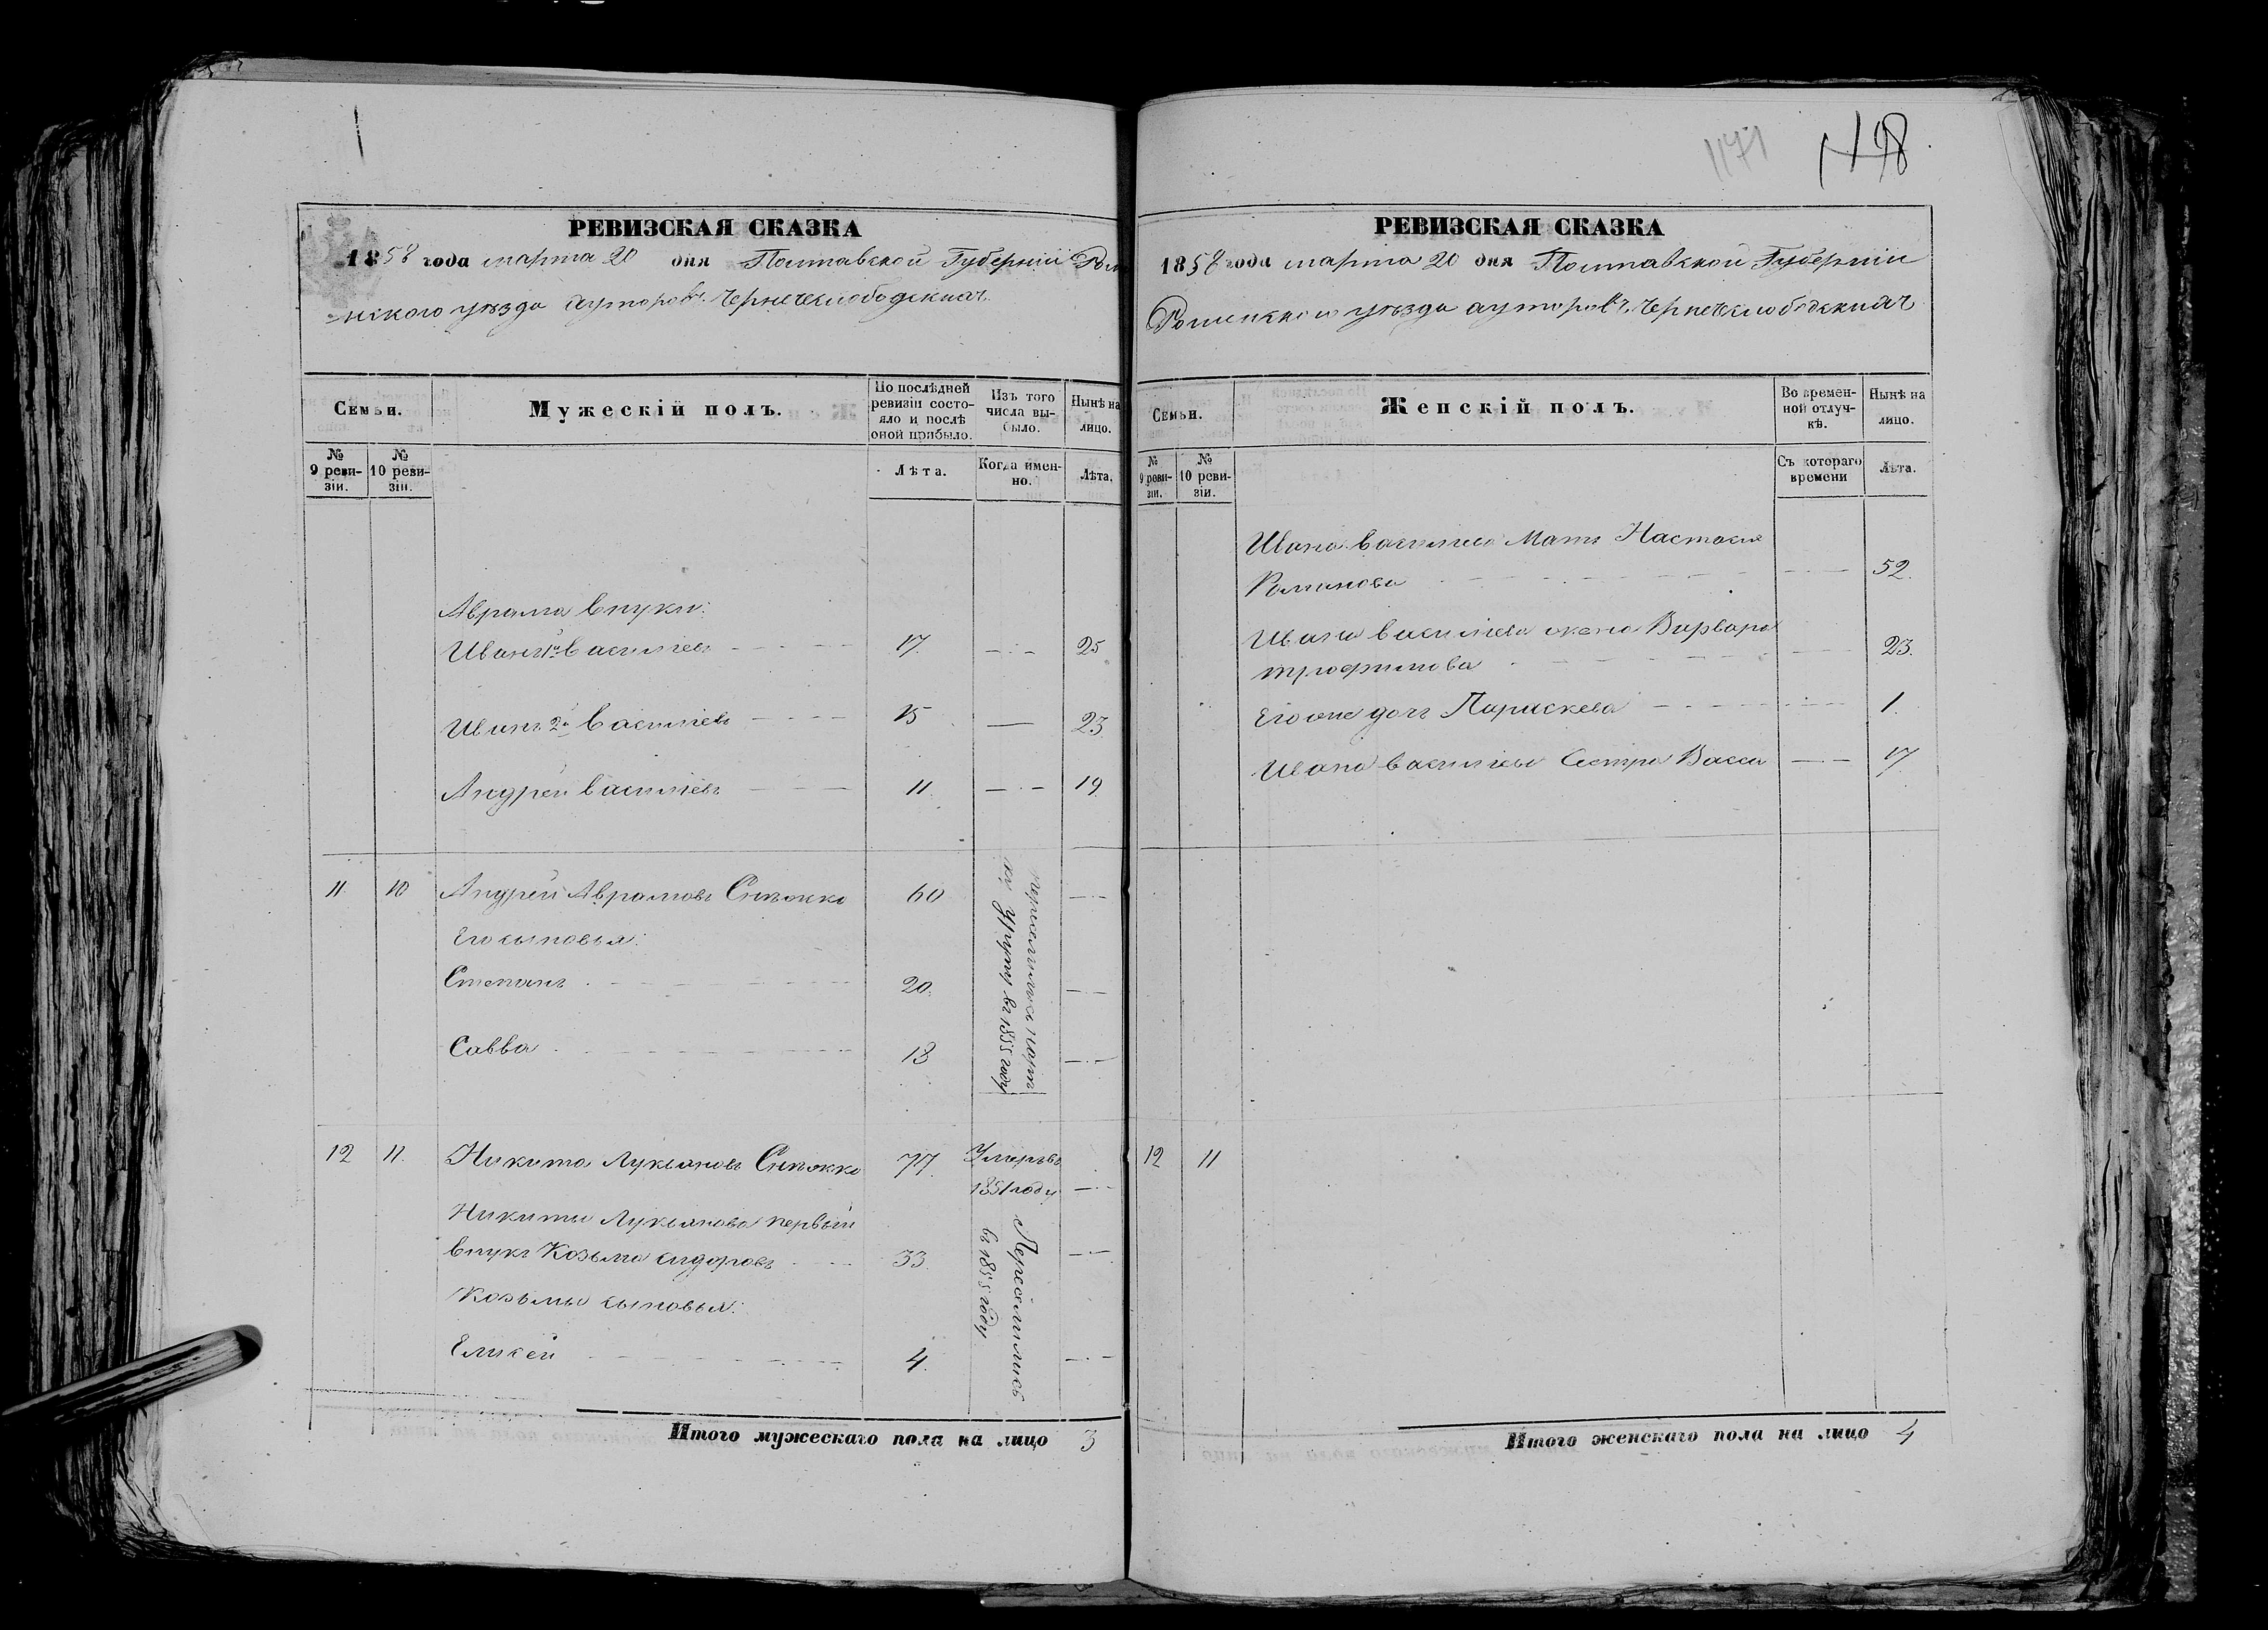 РЕВИЗСКАЯ СКАЗКА
1858 года марта 20 дня Полтавской Губернии Роме
нского уезда хуторовъ Чернечеслободскихъ
Семьи.
Мужескій полъ.
По послѣдней ревизіи состояло и послѣ оной прибыло.
Изъ того числа выбыло.
Нынѣ на лицо.
№ 9 ревизіи.
№ 10 ревизіи.
Лѣта.
Когда именно.
Лѣта.
Аврама внуки:
Иванъ 1й Васильевъ 17. 25
Иванъ 2й Васильевъ 15 23
Андрей Васильевъ 11 19
11 10 Андрей Аврамовъ 60
Его сыновья:
Степанъ 20.
Савва 13
въ 1855 году
12 11. Никита Лукьяновъ 77. Умеръ въ
1851 году
Никиты Лукьянова первый
внукъ Козьма Сидоровъ 33.
Козьмы сыновья:
Елисей 4.
Переселились
въ 1855 году
Итого мужескаго пола на лицо 3
1171
РЕВИЗСКАЯ СКАЗКА
1858 года марта 20 дня Полтавской Губернии
Роменского уезда хуторовъ Чернечеслободскихъ
Семьи.
Женскій полъ.
Во временной отлучкѣ.
Нынѣ на лицо.
№ 9 ревизіи.
№ 10 ревизіи.
Съ котораго времени
Лѣта.
Ивана Васильева Мать Настасия
Романова 52.
Ивана Васильева жена Варвара
Трофимова 23.
Его же дочь Параскева 1.
Ивана Васильева Сестра Васса 17
12 11
Итого женскаго пола на лицо 4